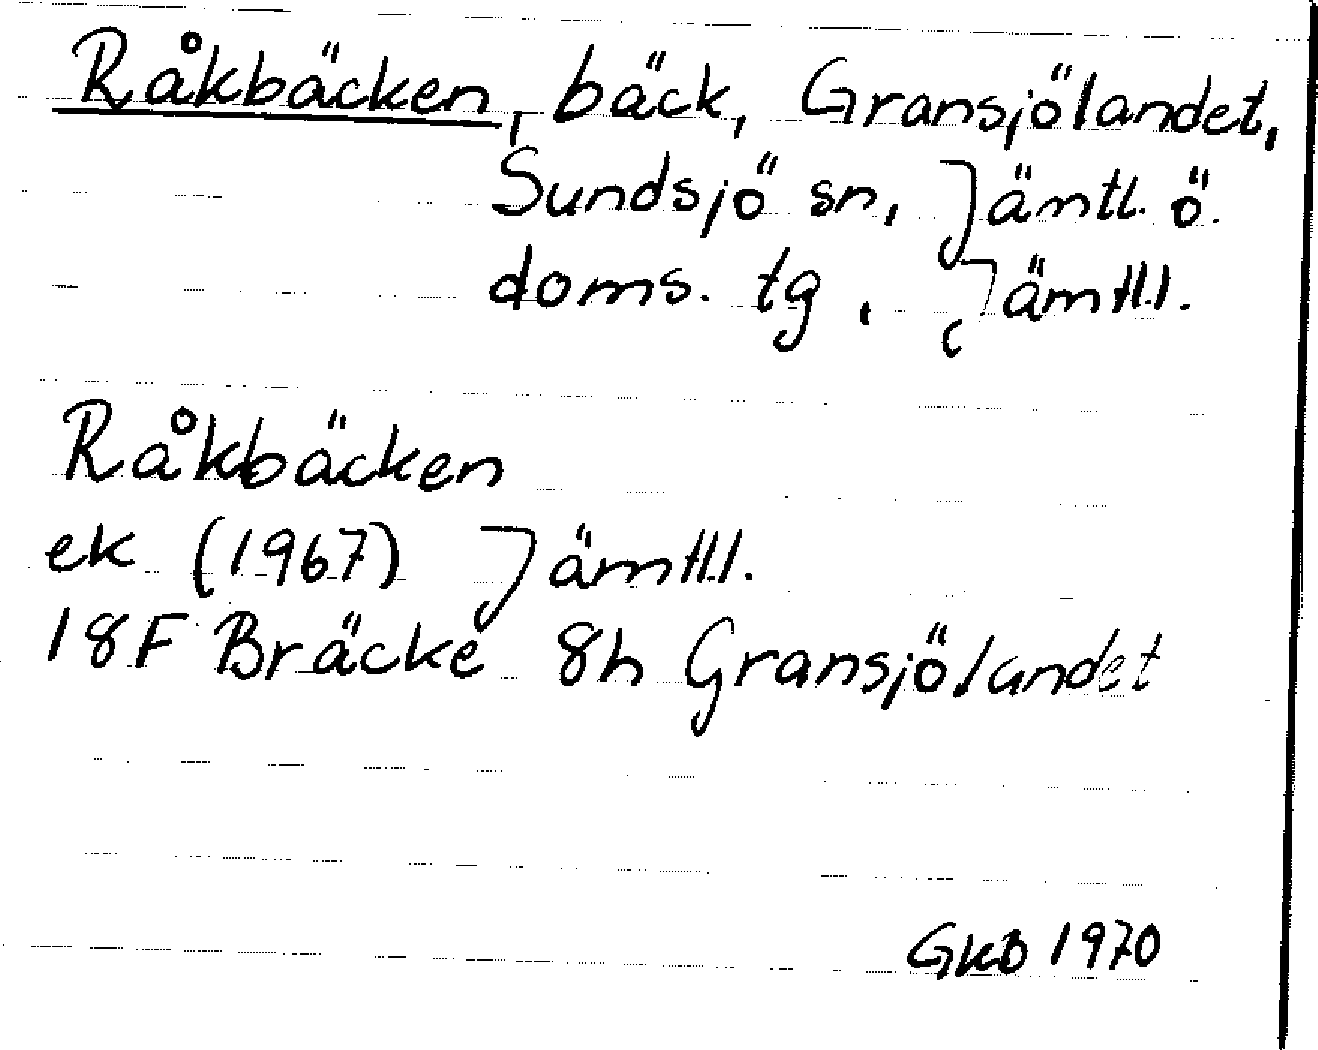 Råkbäcken, bäck, Gransjölandet,
Sundsjö sn, Jämtl. ö.
doms. tg, Jämtl.l.
Råkbäcken
ek (1967) Jämtl.l.
18F Bräcke 8h Gransjölandet
GKB 1970